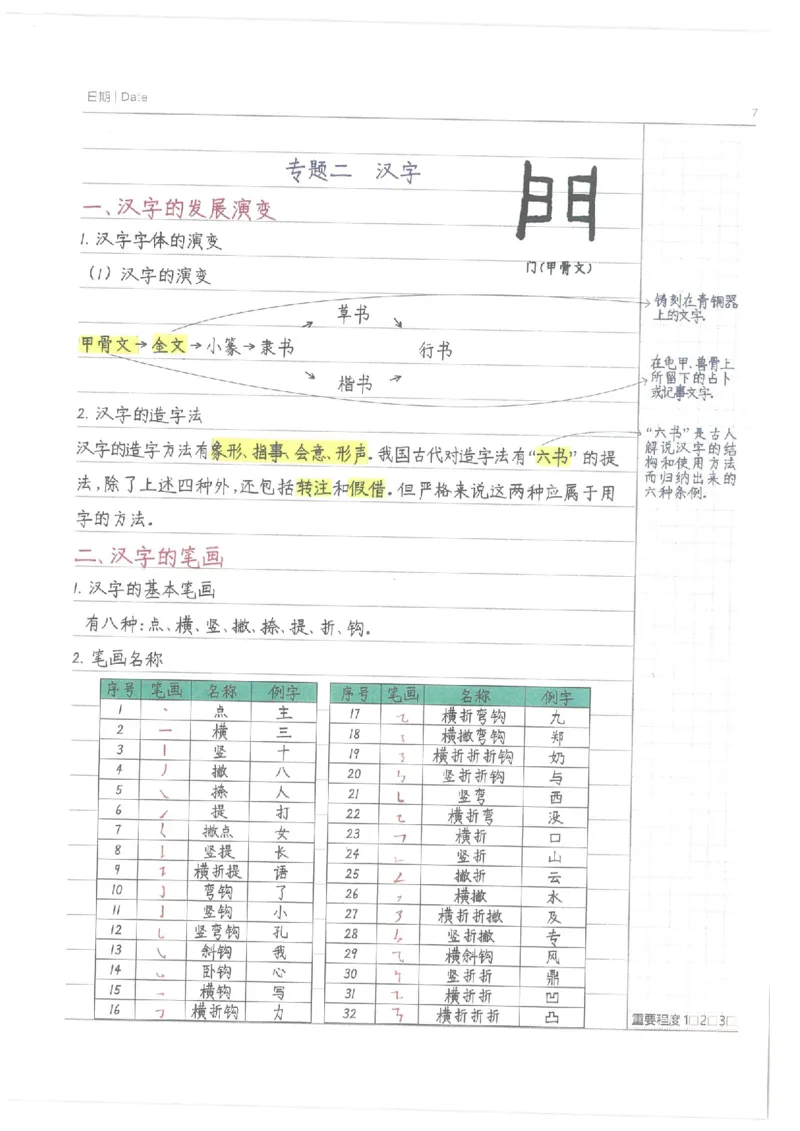 日期 | Date
7
专题二 汉字
一、汉字的发展演变
1. 汉字字体的演变
(1) 汉字的演变
门(甲骨文)
铸刻在青铜器
上的文字.
草书
甲骨文→金文→小篆→隶书 行书
楷书
在龟甲、兽骨上
所留下的占卜
或记事文字.
2. 汉字的造字法
汉字的造字方法有象形、指事、会意、形声。我国古代对造字法有“六书”的提
法,除了上述四种外,还包括转注和假借。但严格来说这两种应属于用
字的方法。
“六书”是古人
解说汉字的结
构和使用方法
而归纳出来的
六种条例.
二、汉字的笔画
1. 汉字的基本笔画
有八种:点、横、竖、撇、捺、提、折、钩。
2. 笔画名称
序号 笔画 名称 例字 序号 笔画 名称 例字
1 丶 点 主 17 ㇈ 横折弯钩 九
2 一 横 三 18 ㇌ 横撇弯钩 郑
3 丨 竖 十 19 ㇡ 横折折折钩 奶
4 丿 撇 八 20 ㇉ 竖折折钩 与
5 ㇏ 捺 人 21 ㇄ 竖弯 西
6 ㇀ 提 打 22 ㇍ 横折弯 没
7 ㇛ 撇点 女 23 ㇕ 横折 口
8 ㇙ 竖提 长 24 ㇗ 竖折 山
9 ㇊ 横折提 语 25 ㇜ 撇折 云
10 ㇁ 弯钩 了 26 ㇇ 横撇 水
11 亅 竖钩 小 27 ㇋ 横折折撇 及
12 ㇟ 竖弯钩 孔 28 ㇞ 竖折撇 专
13 ㇂ 斜钩 我 29 ⺄ 横斜钩 风
14 ㇃ 卧钩 心 30 ㇞ 竖折折 鼎
15 ㇖ 横钩 写 31 ㇅ 横折折 凹
16 ㇆ 横折钩 力 32 ㇎ 横折折折 凸
重要程度 1□2□3□